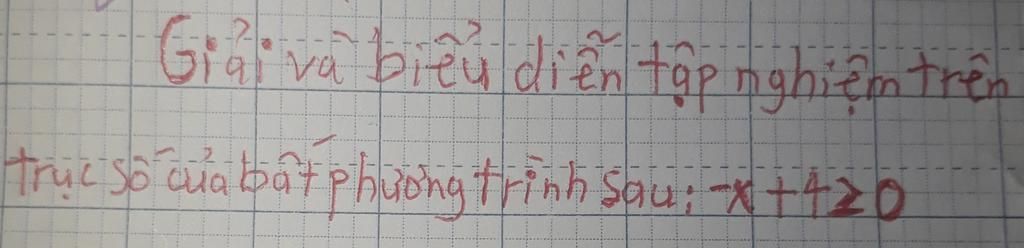 Giải và biểu diễn tập nghiệm trên
trục số của bất phương trình sau: -x+4≥0